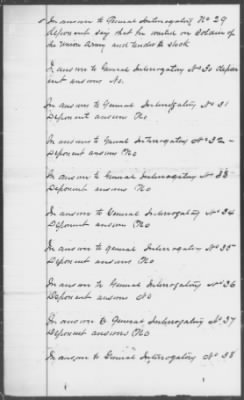 In answer to General Interrogatory No 29
deponent say that he waited on Soldiers of
the Union Army and tended to stock
In answer to General Interrogatory No 30 depon
ent answers No.
In answer to General Interrogatory No 31
Deponent answers No
In answer to General Interrogatory No 32
Deponent answers No
In answer to General Interrogatory No 33
Deponent answers No
In answer to General Interrogatory No 34
Deponent answers No
In answer to General Interrogatory No 35
Deponent answers No
In answer to General Interrogatory No 36
Deponent answers No
In answer to General Interrogatory No 37
Deponent answers No
In answer to General Interrogatory No 38